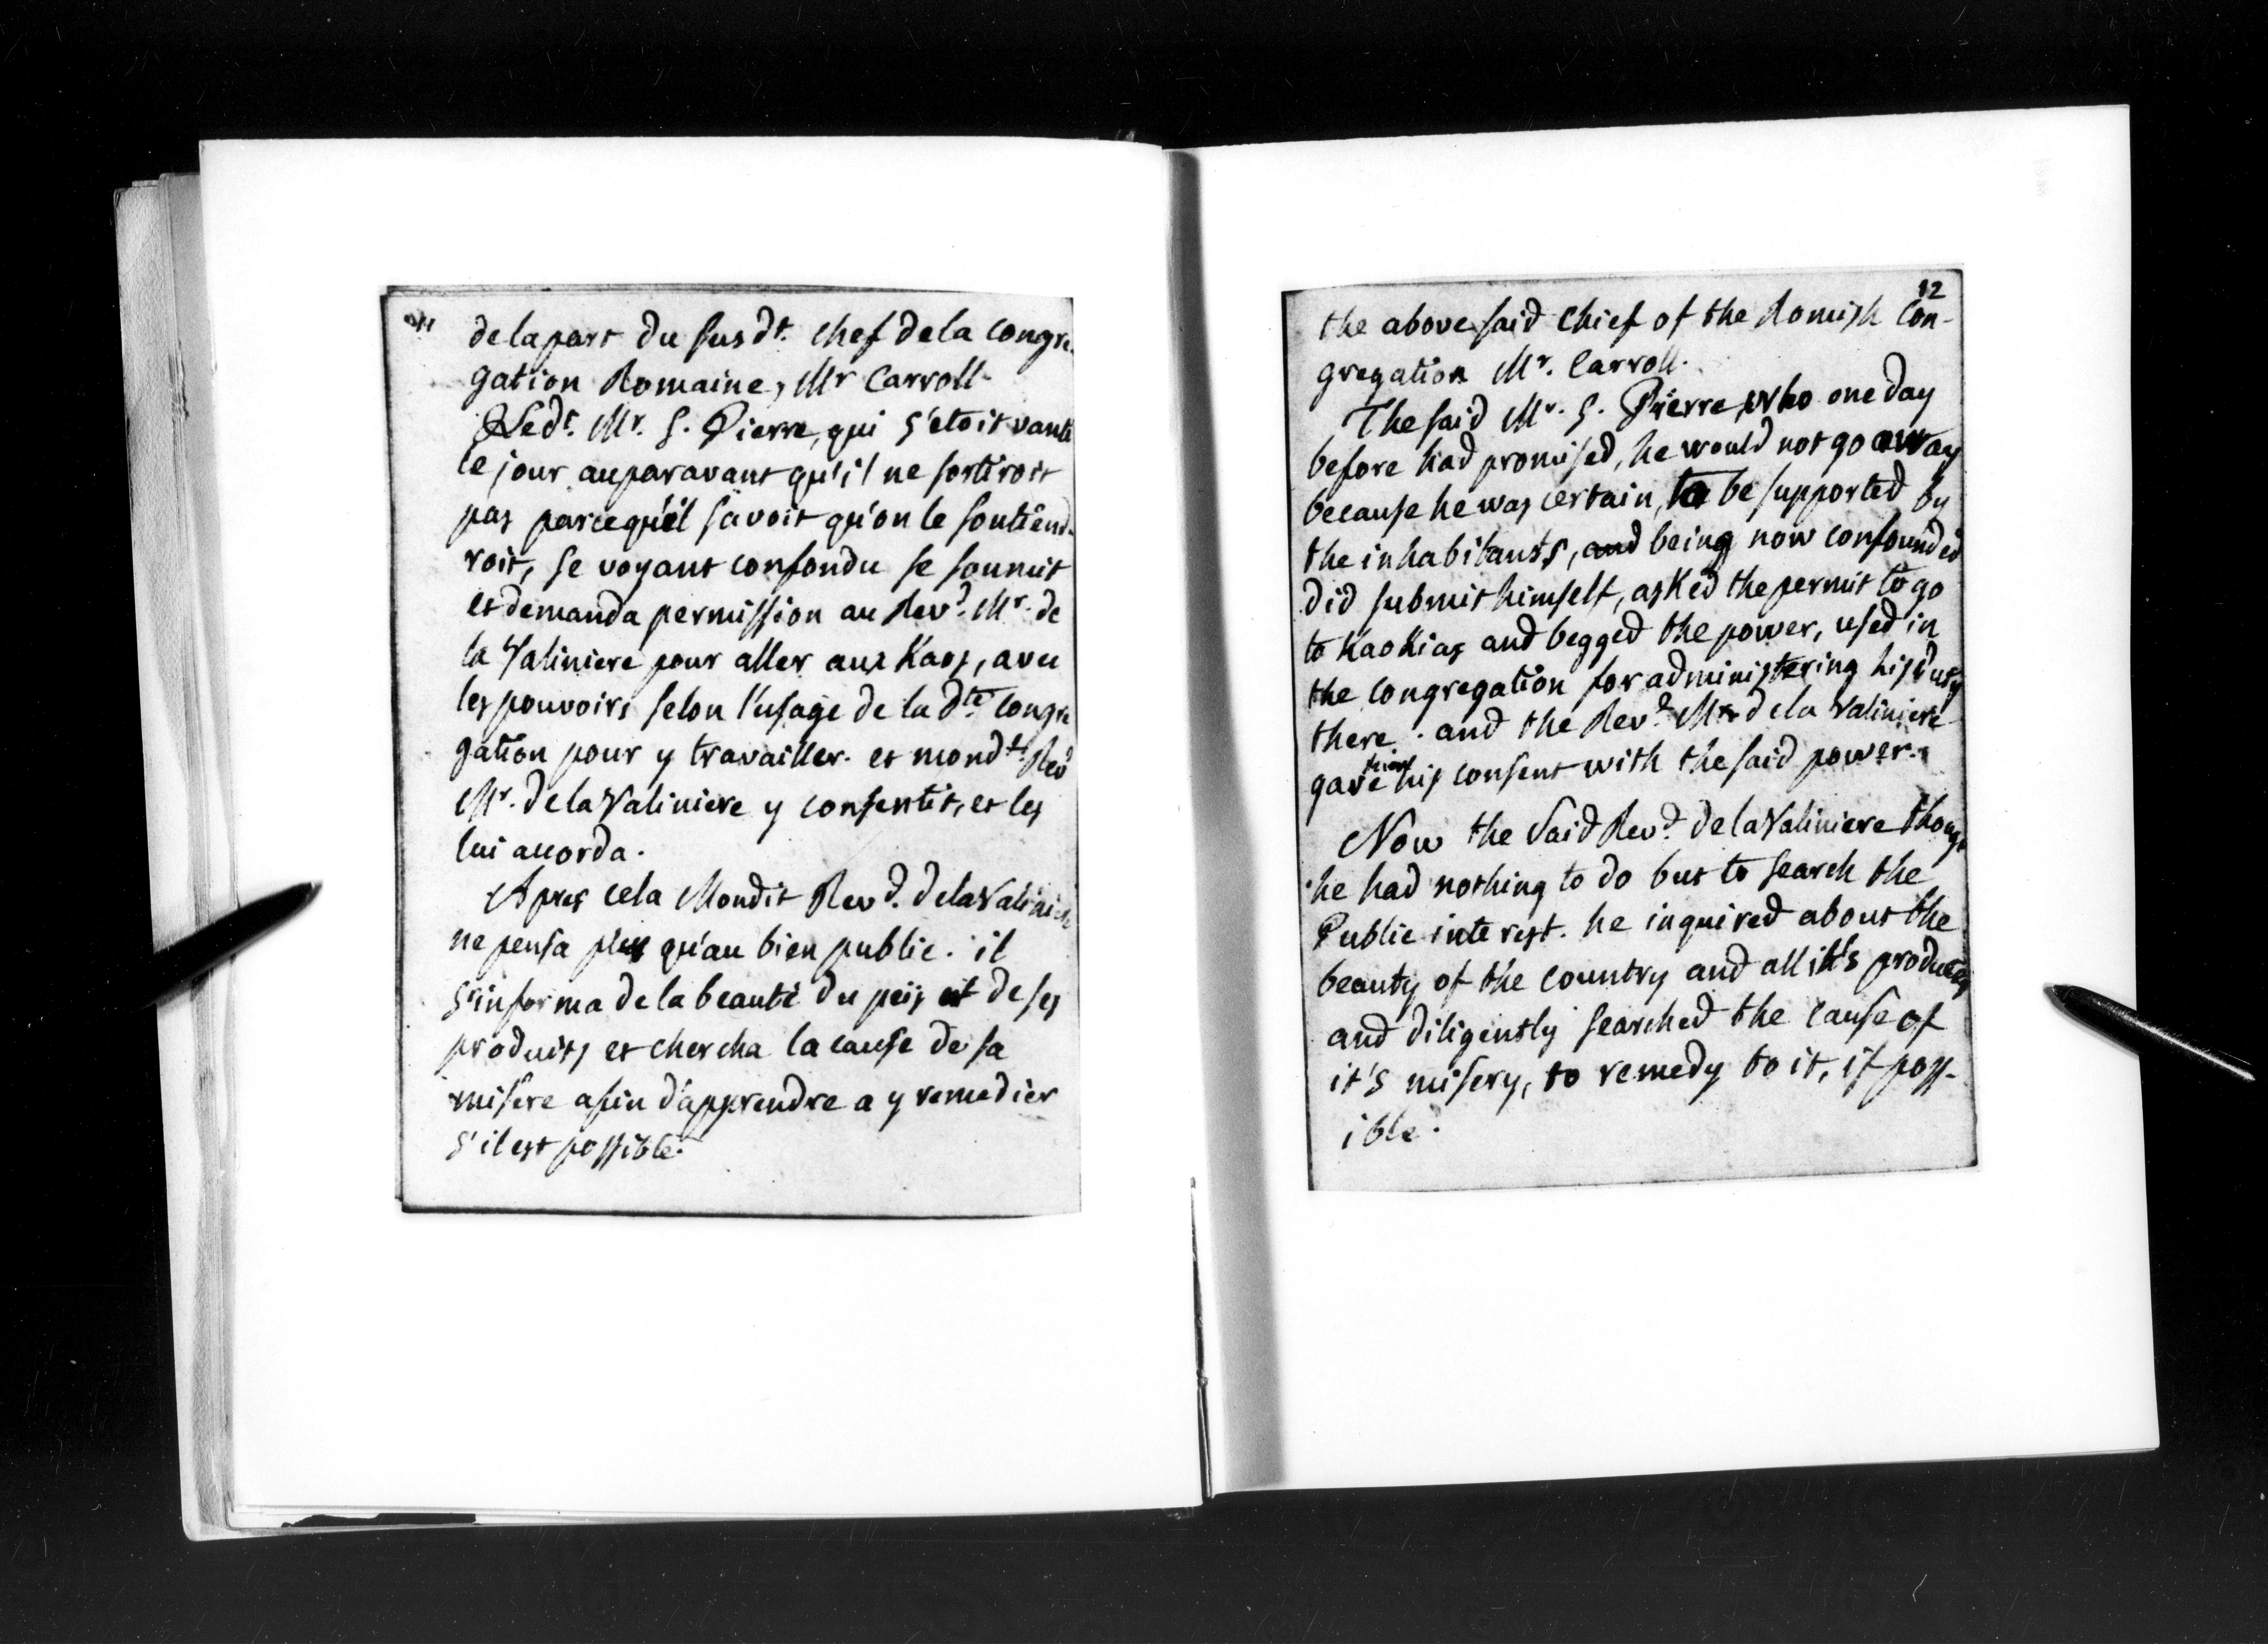 11
de la part du susdt. chef de la congre-
gation Romaine, Mr Carroll.
Ledt. Mr. S. Pierre, qui s'etoit vanté
le jour auparavant qu'il ne sortiroit
pas parcequ'il savoit qu'on le soutiend-
roit, se voyant confondu se soumit
et demanda permission au Revd. Mr. de
la Valiniere pour aller aux Kaos, avec
les pouvoirs selon l'usage de la dte. congre
gation pour y travailler. et mondt. Revd
Mr. de la Valiniere y consentit, et les
lui accorda.
Apres cela Mondit Revd. de la Valiniere
ne pensa plus qu'au bien public. il
s'informa de la beauté du peis et de ses
produits et chercha la cause de sa
misere afin d'apprendre a y remedier
s'il est possible.
12
the above said chief of the Romish Con-
gregation Mr. Carroll.
The said Mr. S. Pierre, who one day
before had promised, he would not go away
because he was certain, to be supported by
the inhabitants, and being now confounded
did submit himself, asked the permit to go
to Kaokias and begged the power, used in
the congregation for administering his duty
there. and the Revd. Mr. de la Valiniere
gave him his consent with the said power.
Now the said Revd. de la Valiniere though
he had nothing to do but to search the
Public interest. he inquired about the
beauty of the country and all it's produces
and diligently searched the cause of
it's misery, to remedy to it, if poss-
ible.